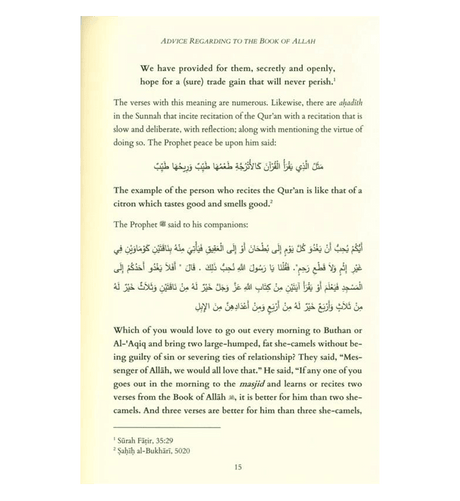 ADVICE REGARDING TO THE BOOK OF ALLAH
We have provided for them, secretly and openly,
hope for a (sure) trade gain that will never perish.¹
The verses with this meaning are numerous. Likewise, there are aḥadīth
in the Sunnah that incite recitation of the Qur'an with a recitation that is
slow and deliberate, with reflection; along with mentioning the virtue of
doing so. The Prophet peace be upon him said:
مَثَلُ الَّذِي يَقْرَأُ الْقُرْآنَ كَالأُتْرُجَّةِ طَعْمُهَا طَيِّبٌ وَرِيحُهَا طَيِّبٌ
The example of the person who recites the Qur'an is like that of a
citron which tastes good and smells good.²
The Prophet ﷺ said to his companions:
أَيُّكُمْ يُحِبُّ أَنْ يَغْدُوَ كُلَّ يَوْمٍ إِلَى بُطْحَانَ أَوْ إِلَى الْعَقِيقِ فَيَأْتِيَ مِنْهُ بِنَاقَتَيْنِ كَوْمَاوَيْنِ فِي
غَيْرِ إِثْمٍ وَلَا قَطْعِ رَحِمٍ". فَقُلْنَا يَا رَسُولَ اللَّهِ نُحِبُّ ذَلِكَ . قَالَ " أَفَلَا يَغْدُو أَحَدُكُمْ إِلَى
الْمَسْجِدِ فَيَعْلَمَ أَوْ يَقْرَأَ آيَتَيْنِ مِنْ كِتَابِ اللَّهِ عَزَّ وَجَلَّ خَيْرٌ لَهُ مِنْ نَاقَتَيْنِ وَثَلَاثٌ خَيْرٌ لَهُ
مِنْ ثَلَاثٍ وَأَرْبَعٌ خَيْرٌ لَهُ مِنْ أَرْبَعٍ وَمِنْ أَعْدَادِهِنَّ مِنَ الإِبِلِ
Which of you would love to go out every morning to Buthan or
Al-'Aqiq and bring two large-humped, fat she-camels without be-
ing guilty of sin or severing ties of relationship? They said, "Mes-
senger of Allāh, we would all love that." He said, "If any one of you
goes out in the morning to the masjid and learns or recites two
verses from the Book of Allāh, it is better for him than two she-
camels. And three verses are better for him than three she-camels,
¹ Sūrah Fāṭir, 35:29
² Ṣaḥīḥ al-Bukhārī, 5020
15